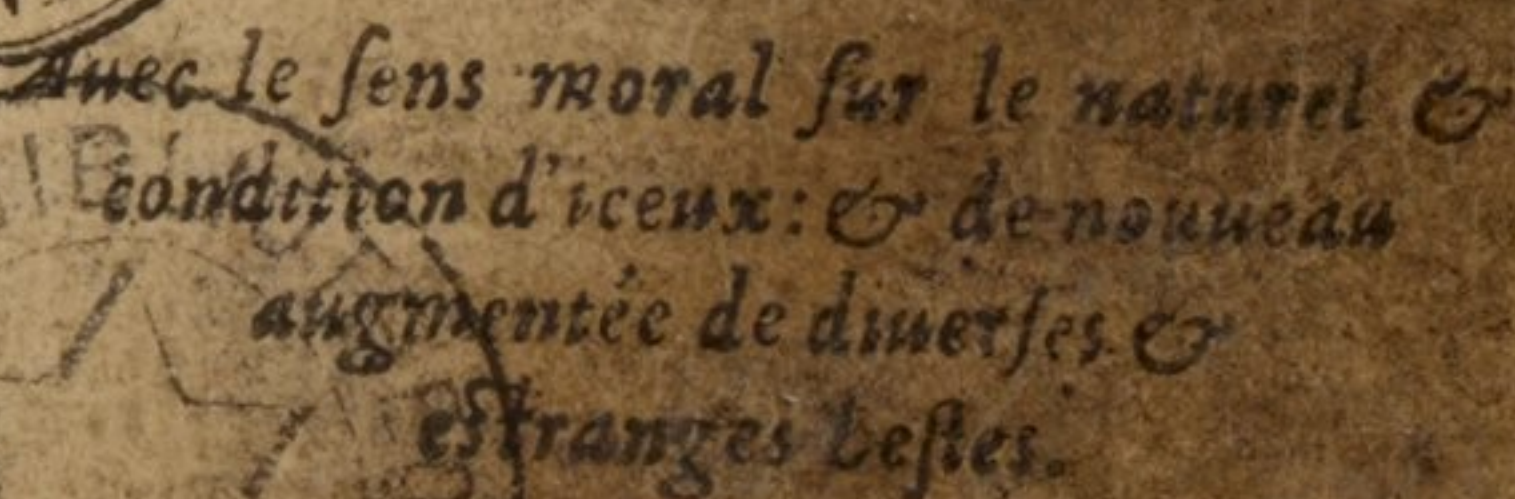 Auec le ſens moral ſur le naturel &
condition d'iceux: & de nouueau
augmentée de diuerſes &
eſtranges beſtes.